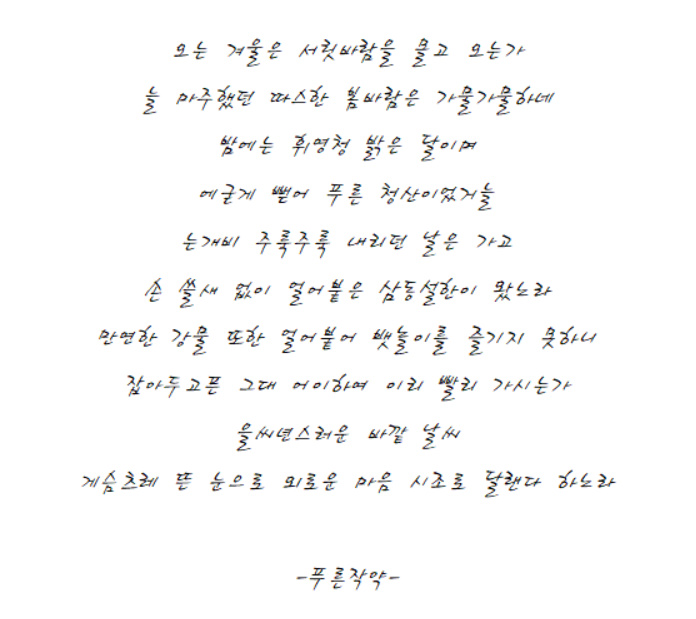 오는 겨울은 서릿바람을 몰고 오는가
늘 마주했던 따스한 봄바람은 가물가물하네
밤에는 휘영청 밝은 달이며
에굳게 뻗어 푸른 청산이었거늘
는개비 주룩주룩 내리던 날은 가고
손 쓸새 없이 얼어붙은 삼동설한이 왔노라
만연한 강물 또한 얼어붙어 뱃놀이를 즐기지 못하니
잡아두고픈 그대 어이하여 이리 빨리 가시는가
을씨년스러운 바깥 날씨
게슴츠레 뜬 눈으로 외로운 마음 시조로 달랜다 하노라
-푸른작약-